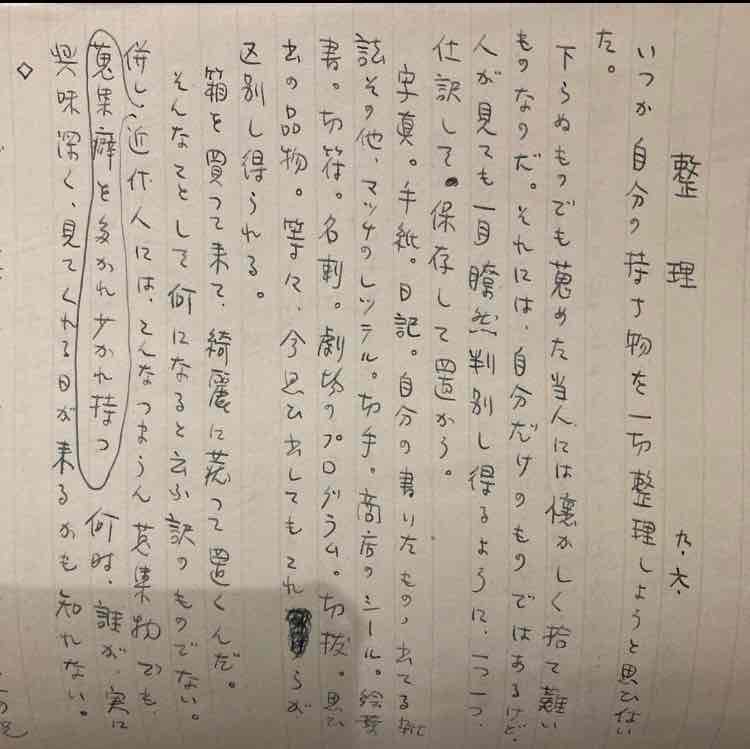 整理　九・六・
いつか自分の持ち物を一切整理しようと思ひ
た。
下らぬものでも蒐めた当人には懐かしく捨て難い
ものなのだ。それには、自分だけのものではあるけど、
人が見ても一目瞭然判別し得るように、一つ一つ、
仕訳して保存して置かう。
字真。手紙。日記。自分の書いたもの、出てる雑
誌その他、マッチのレッテル。切手。商店のシール。絵葉
書。切符。名刺。劇場のプログラム。切抜。思ひ
出の品物。等々、今思ひ出してもこれらが
区別し得られる。
箱を買つて来て、綺麗に蒐つて置くんだ。
そんなことして何になると云ふ訳のものでない。
併し、近代人には、こんなつまらん蒐集物でも、
蒐集癖を多かれ少かれ持つ 何時、誰が、実に
興味深く、見てくれる日が来るかも知れない。
◇